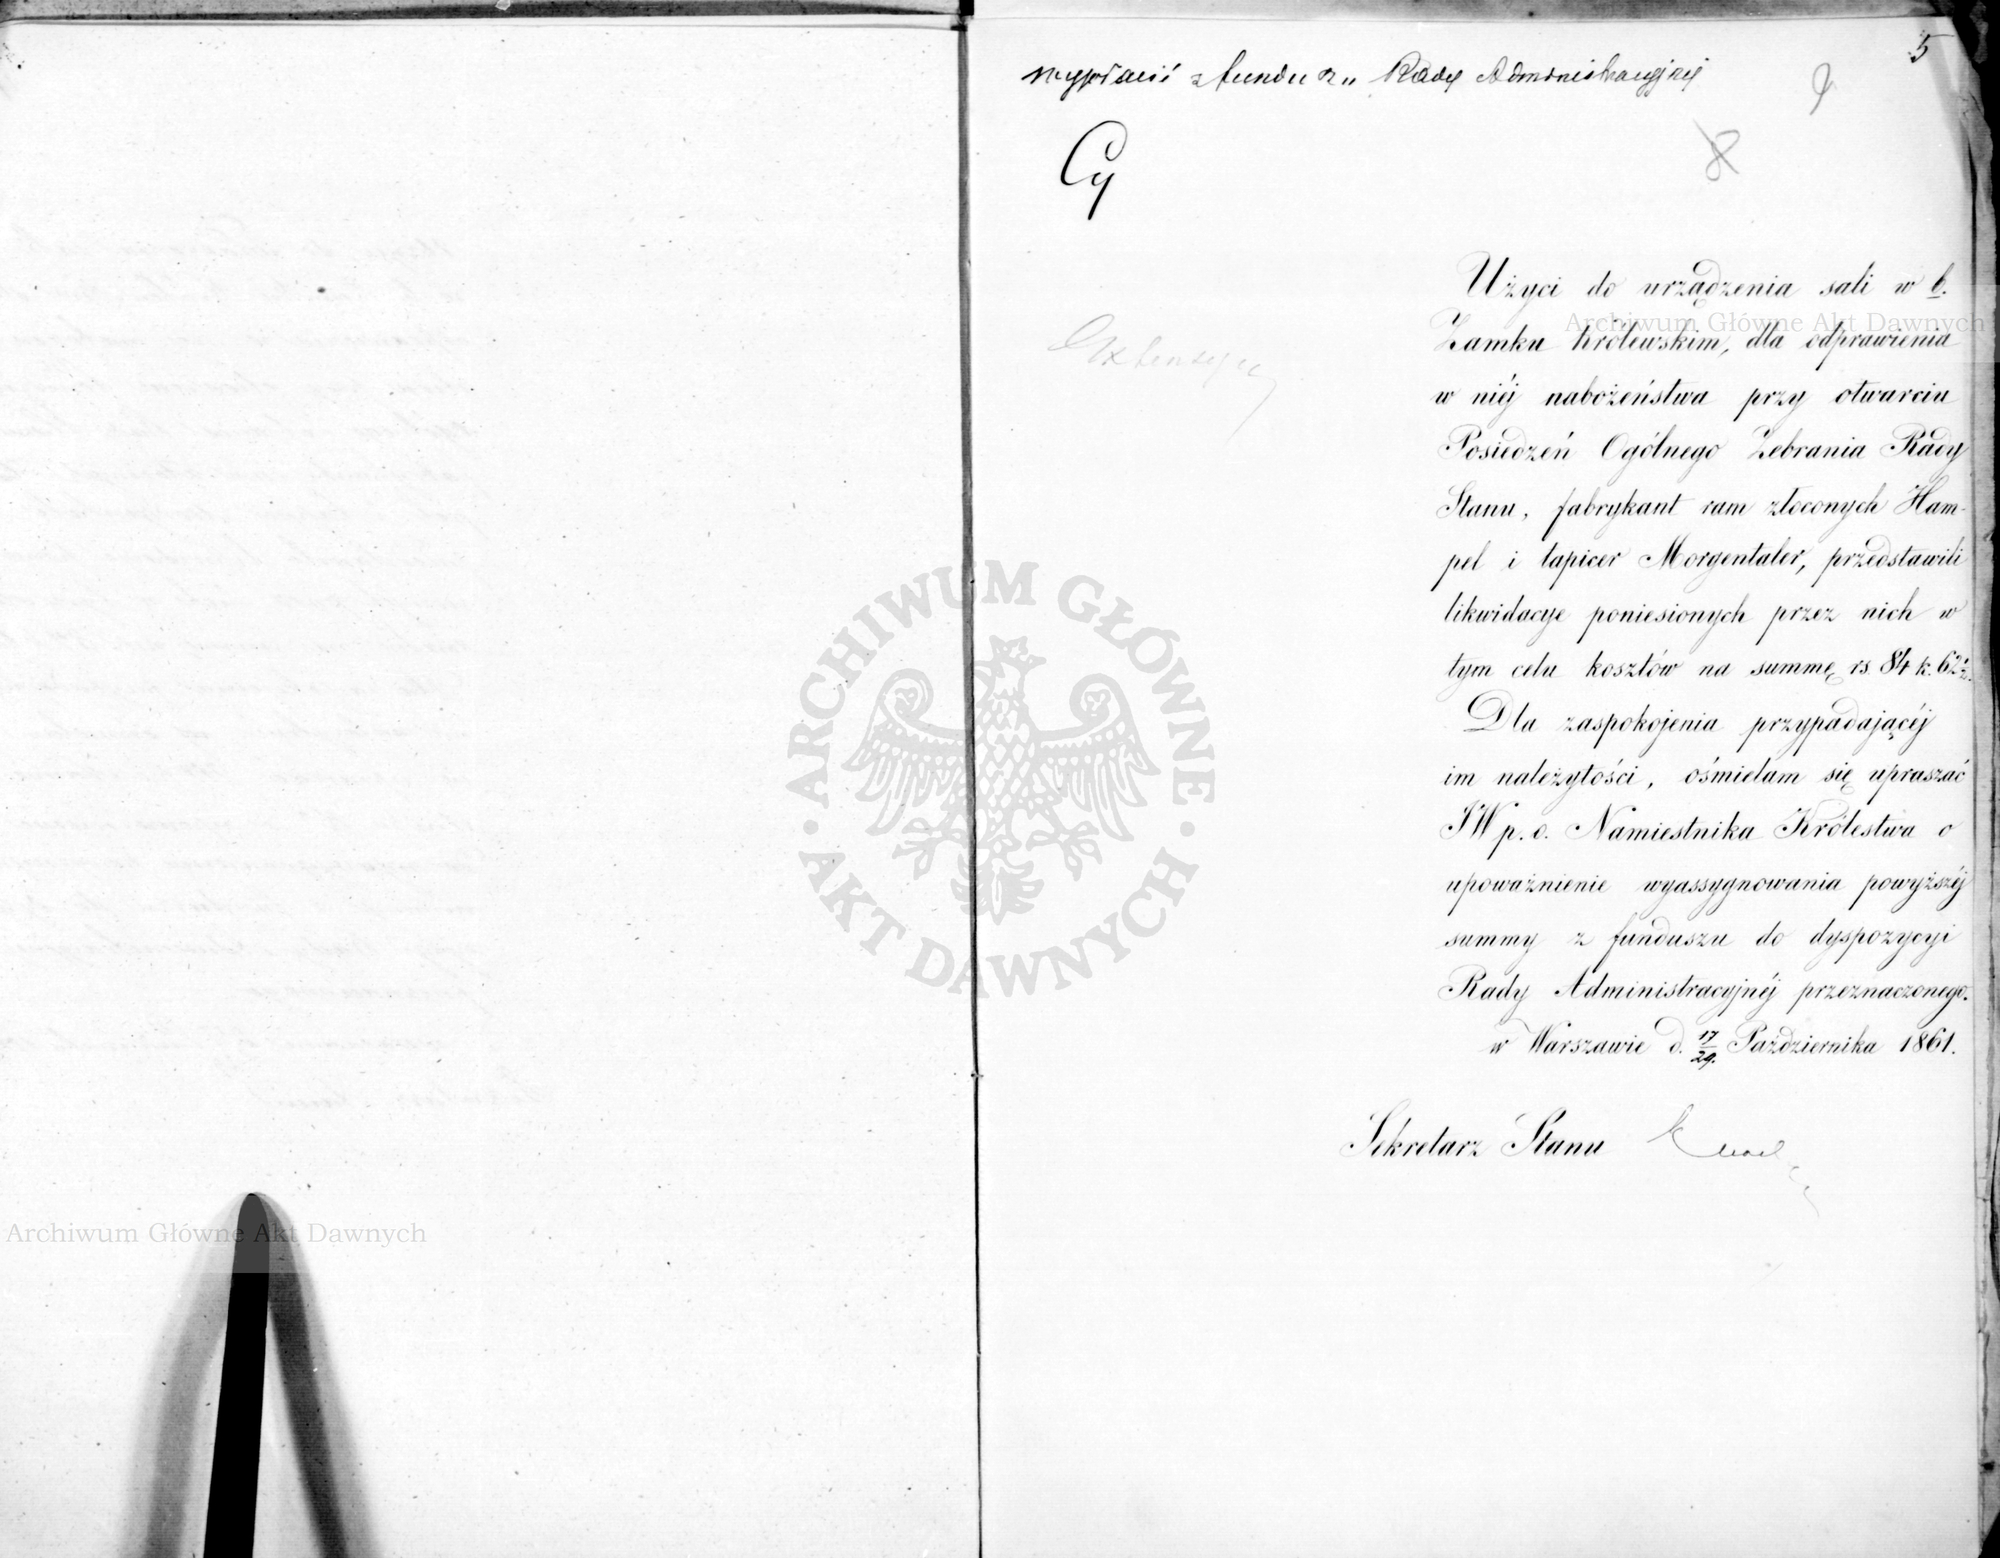 5
wypłacić z fundu[szu] Rady Administracyjnej
9
8
Cy
Użyci do urządzenia sali w b.
Zamku Królewskim, dla odprawienia
w niéj nabożeństwa przy otwarciu
Posiedzeń Ogólnego Zebrania Rady
Stanu, fabrykant ram złoconych Ham-
pel i tapicer Morgentaler, przedstawili
likwidacye poniesionych przez nich w
tym celu kosztów na summę rs. 84 k. 62½.
Dla zaspokojenia przypadającéj
im należytości, ośmielam się upraszać
JW p. o. Namiestnika Królestwa o
upoważnienie wyassygnowania powyższéj
summy z funduszu do dyspozycyi
Rady Administracyjnéj przeznaczonego.
w Warszawie d. 17/29. Października 1861.
Sekretarz Stanu
Archiwum Główne Akt Dawnych
ARCHIWUM GŁÓWNE
AKT DAWNYCH
Archiwum Główne Akt Dawnych